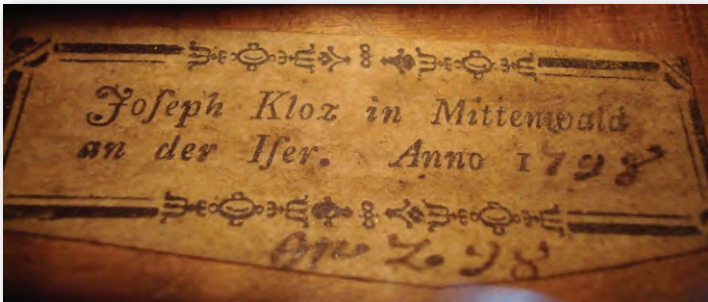 Joſeph Kloz in Mittenwald
an der Iſer. Anno 1798
98